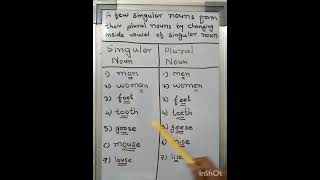 A few singular nouns form
their plural nouns by changing
inside vowel of singular noun
Singular Noun | Plural Noun
1) man | 1) men
2) woman | 2) women
3) feet | 3) feet
4) tooth | 4) teeth
5) goose | 5) geese
6) mouse | 6) mice
7) louse | 7) lice
InShOt